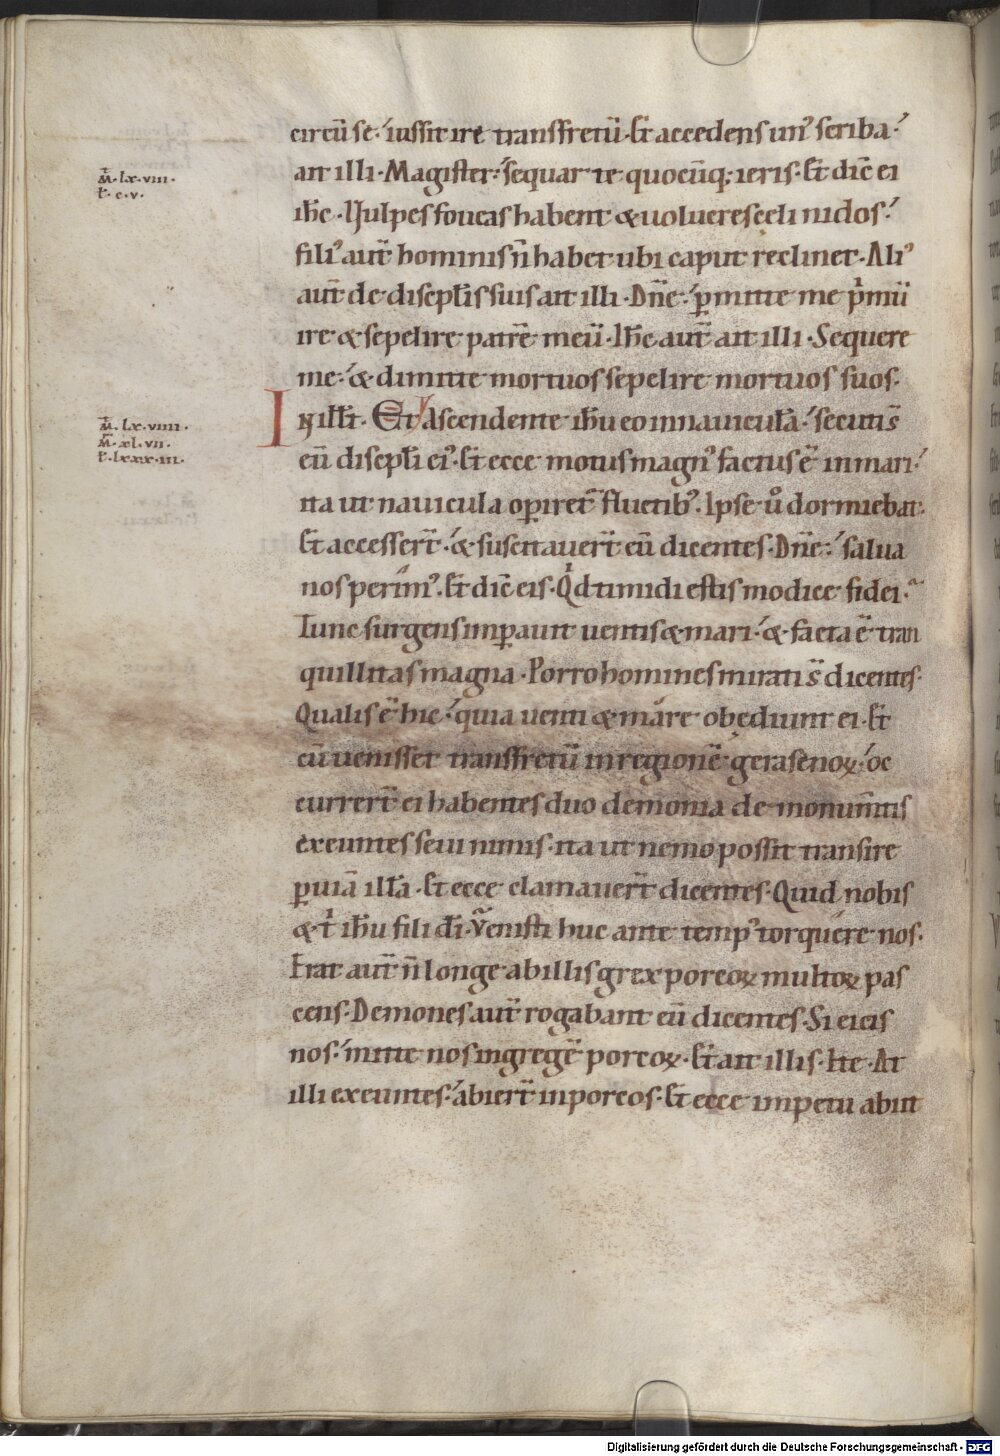 circū se·́ iussit ire transfretū· Et accedens unꝰ scriba·́
M̄· lx· viii·
L̄· c· v·
ait illi· Magister·́ sequar te quocūq; ieris· Et dic̄ ei
ih̄c· Vulpes foueas habent & uolucres cęli nidos·́
filiꝰ aut̄ hominis n̄ habet ubi caput reclinet· Aliꝰ
aut̄ de discipl̄is suis ait illi· Dn̄e·́ ꝑmitte me p̍mū
ire & sepelire patrē meū· Ih̄c aut̄ ait illi· Sequere
me·́ & dimitte mortuos sepelire mortuos suos·
M̄· lx· viiii·
M̄· xl· vii·
L̄· lxxx· iii·
IN ill̄t· Et ascendente ih̄u eo in nauicul̄a·́ secuti s̄
eū discipl̄i eiꝰ· Et ecce motus magnꝰ factus ē in mari·́
ita ut nauicula oꝑiret̄ fluctibꝰ· Ipse ů dormiebat·
Et accesser̄t·́ & suscitauer̄t eū dicentes· Dn̄e·́ salua
nos perimꝰ· Et dic̄ eis· Qͥd timidi estis modice fidei·~
Tunc surgens imꝑauit uentis & mari·́ & facta ē tran
quillitas magna· Porro homines mirati s̄ dicentes·
Qualis ē hic·́ quia uenti & mare obędiunt ei· Et
cū uenisset transfretū in regionē gerasenoꝝ·́ oc
currer̄t ei habentes duo demonia de monum̄tis
exeuntes seui nimis· ita ut nemo possit transire
ꝑ uiā illā· Et ecce clamauer̄t dicentes· Quid nobis
& tͥ ih̄u fili dī· Venisti huc ante tempꝰ torquere nos·
Erat aut̄ n̄ longe ab illis grex porcoꝝ multoꝝ pas
cens· Demones aut̄ rogabant eū dicentes· Si eicis
nos·́ mitte nos in gregē porcoꝝ· Et ait illis· Ite· At
illi exeuntes·́ abier̄t in porcos· Et ecce impetu abiit
Digitalisierung gefördert durch die Deutsche Forschungsgemeinschaft - DFG